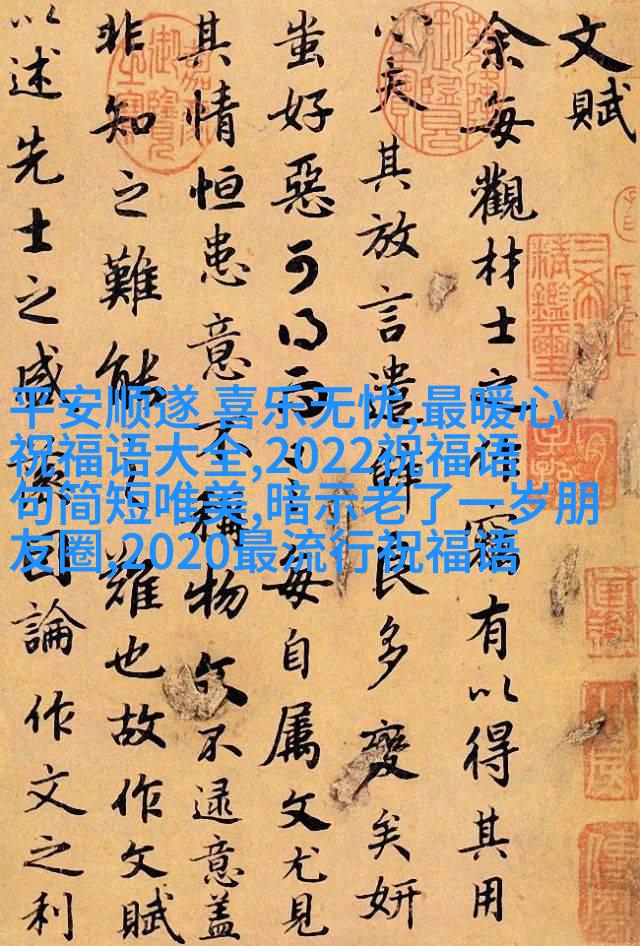 文賦
余每觀材士之作竊有以得其用
心夫其放言遣辭良多變矣妍
蚩好惡可得而言每自屬文尤見
其情恒患意不稱物文不逮意蓋
非知之難能之難也故作文賦
以述先士之盛藻因論作文之利
平安顺遂 喜乐无忧,最暖心
祝福语大全,2022祝福语
句简短唯美,暗示老了一岁朋
友圈,2020最流行祝福语